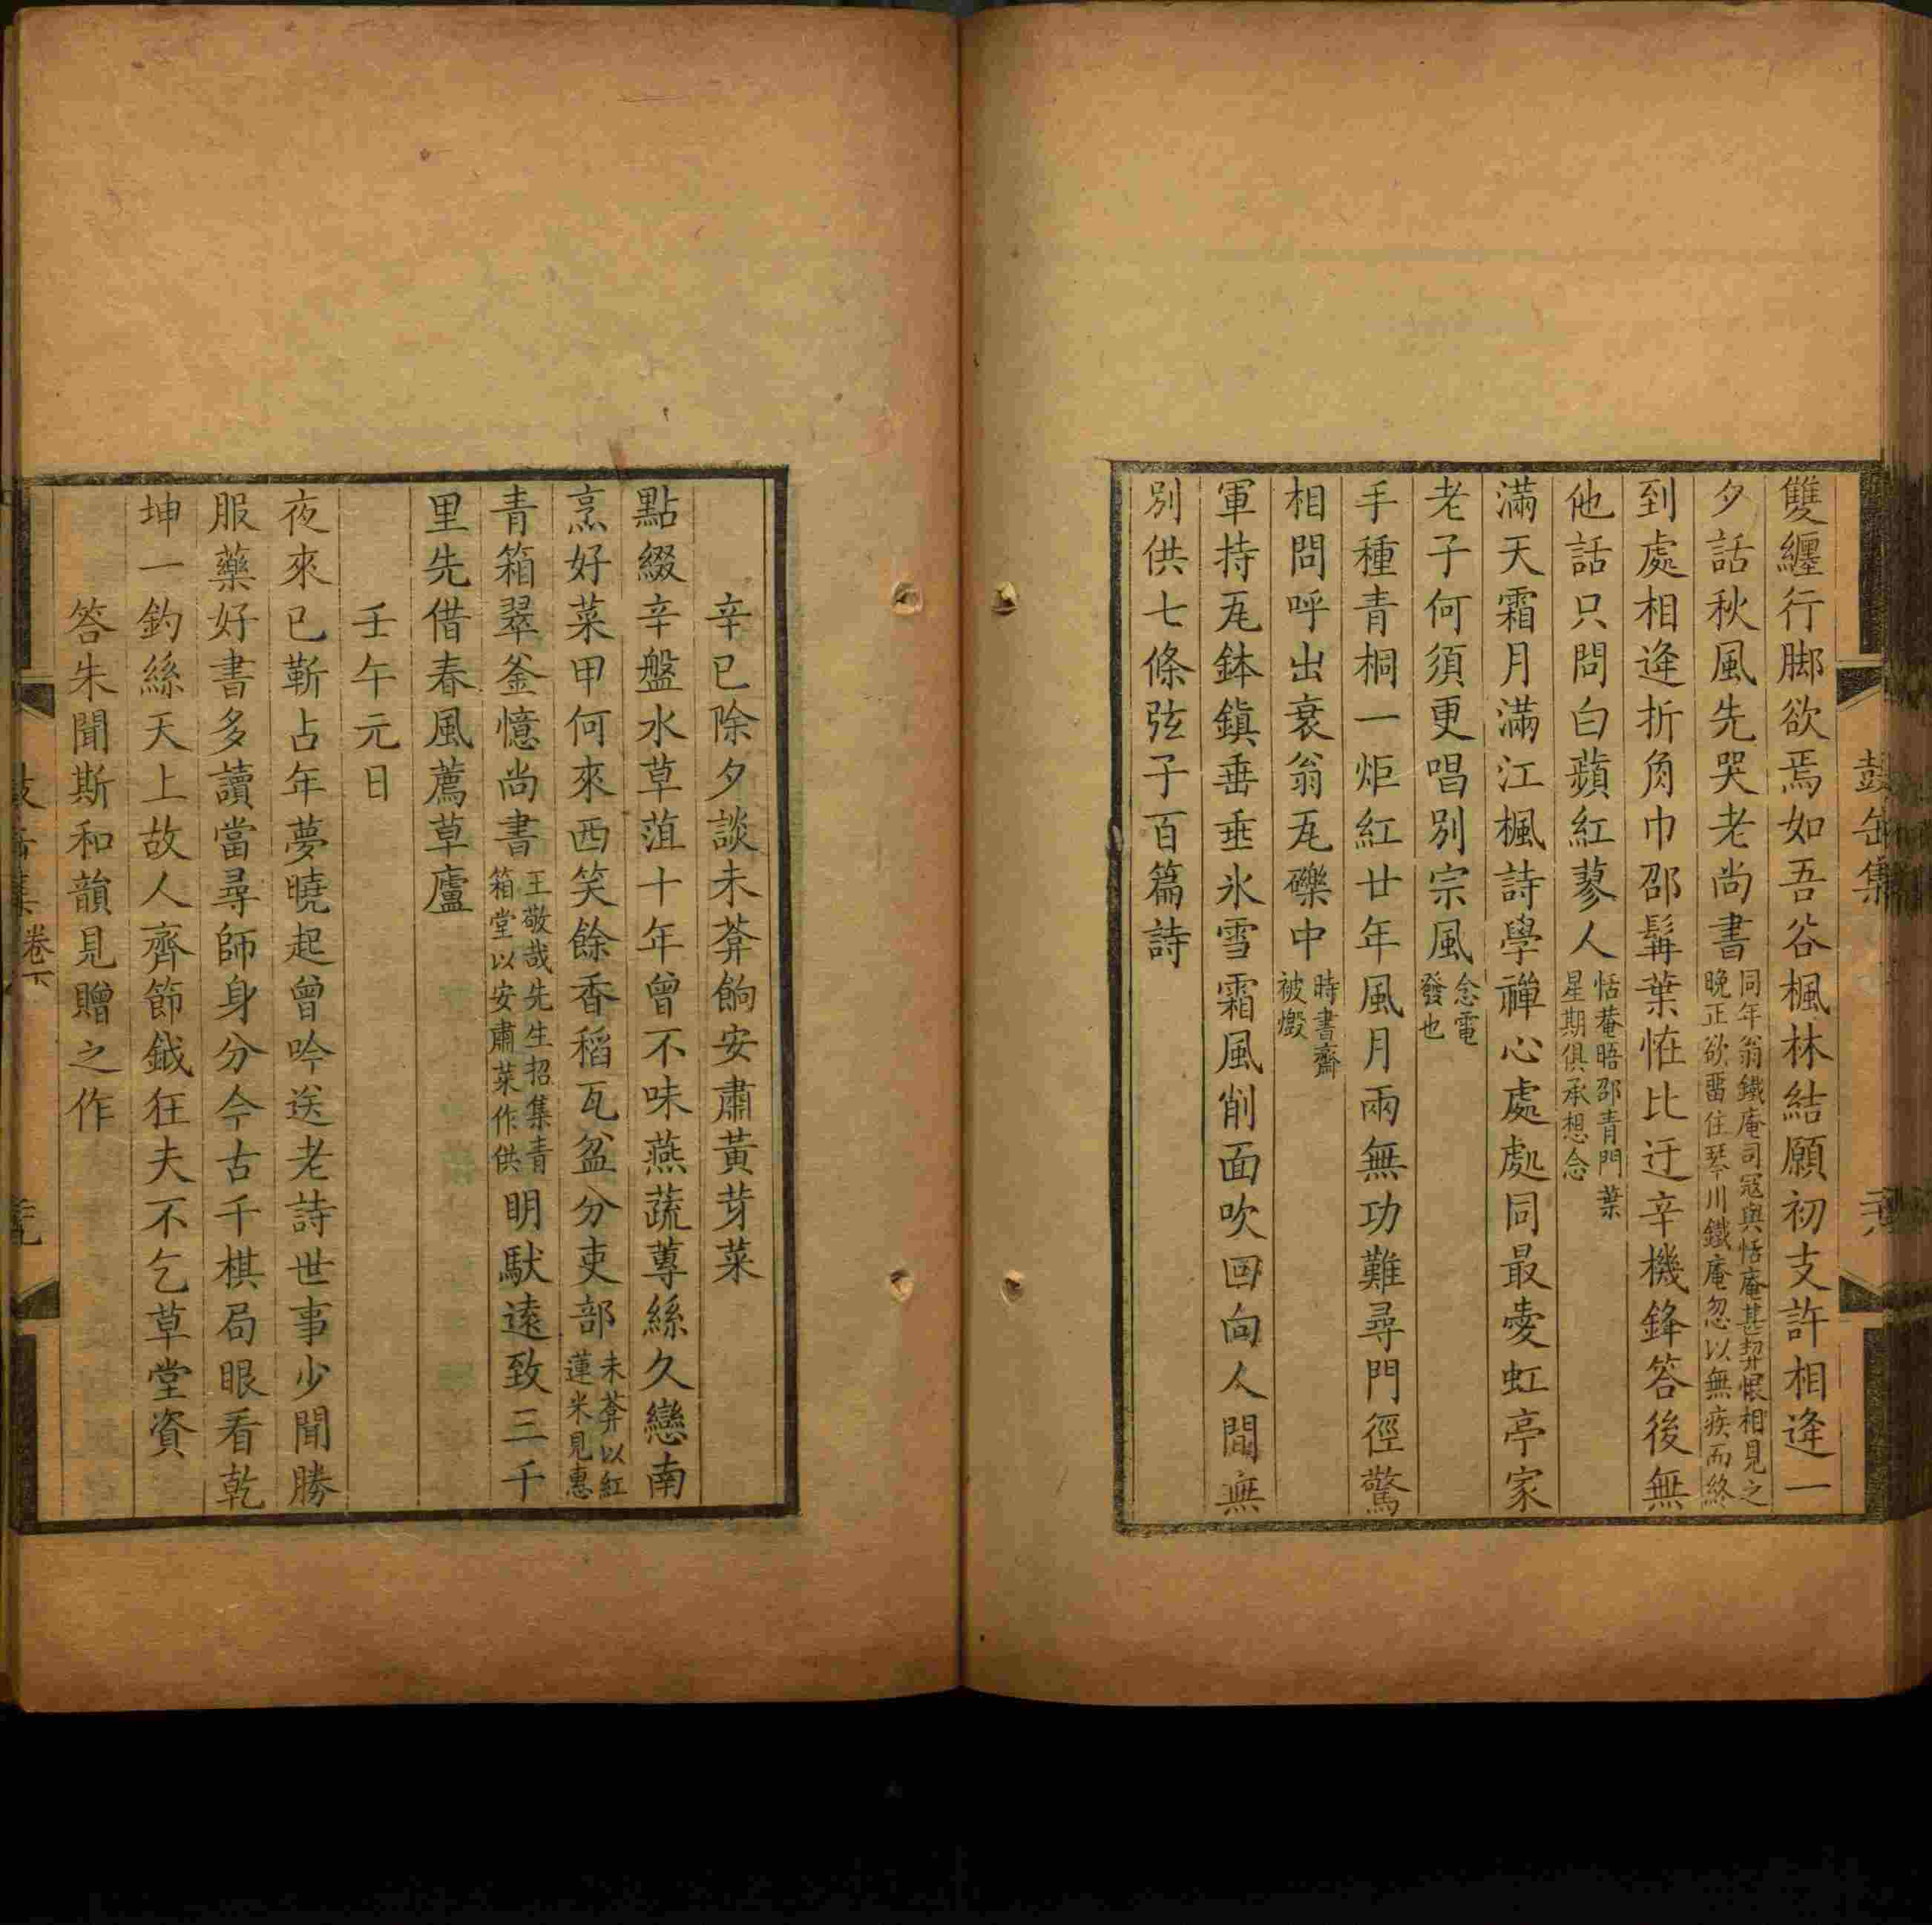 雙纏行脚欲焉如吾谷楓林結願初支許相逢一
夕話秋風先哭老尚書同年翁鐵庵司寇與恬庵甚契恨相見之晚正欲畱住琴川鐵庵忽以無疾而終
到處相逢折角巾邵髯葉恠比迂辛機鋒答後無
他話只問白蘋紅蓼人恬菴晤邵青門葉星期俱承想念
滿天霜月滿江楓詩學禪心處處同最愛虹亭家
老子何須更唱別宗風念電發也
手種青桐一炬紅廿年風月兩無功難尋門徑驚
相問呼出衰翁瓦礫中時書齋被燬
軍持瓦鉢鎮垂垂氷雪霜風削面吹回向人間無
別供七條弦子百篇詩
鼓缶集
辛巳除夕談未莽餉安肅黃芽菜
點綴辛盤水草菹十年曾不味燕蔬蓴絲久戀南
烹好菜甲何來西笑餘香稻瓦盆分吏部未莽以紅蓮米見惠
青箱翠釜憶尚書王敬哉先生招集青箱堂以安肅菜作供明馱遠致三千
里先借春風薦草廬
壬午元日
夜來已蘄占年夢曉起曾吟送老詩世事少聞勝
服藥好書多讀當尋師身分今古千棋局眼看乾
坤一釣絲天上故人齊節鉞狂夫不乞草堂資
答朱聞斯和韻見贈之作
卷下